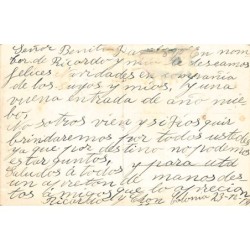 Señor Benito en nom
bre de Ricardo y mio le deseamos
felices navidades en compañia
de los suyos y mios, y una
vuena entrada de año nue
bo,
Nosotros vien y si fios guir
brindaremos por todos ustedes
ya que por destino no podemos
estar juntos, y para utd
saludos a todos
un apreton de manos des
tos amigos que lo aprecian
Ricardo y